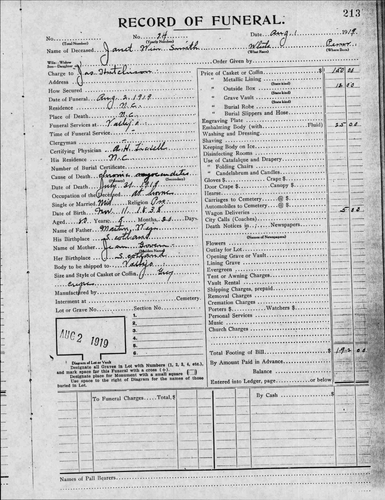 213
RECORD OF FUNERAL.
No. 24 Date Aug. 1 1919
(Total Number) (Yearly Number)
Name of Deceased Janet Smith White
(What Race) (Where Born)
Order Given by
Charge to Jas Hutchison
Address
How Secured
Date of Funeral Aug. 2, 1919
Residence N.C.
Place of Death N.C.
Funeral Services at
Time of Funeral Service
Clergyman
Certifying Physician
His Residence N.C.
Number of Burial Certificate
Cause of Death Chronic myocarditis
Date of Death July 31, 1919
Occupation of the Deceased At home
Single or Married Religion
Date of Birth Nov. 11, 1838
Aged 80 Years 8 Months 20 Days
Name of Father
His Birthplace Scotland
Name of Mother
Her Birthplace Scotland
Body to be shipped to
Size and Style of Casket or Coffin Grey
crepe
Manufactured by
Interment at Cemetery
Lot or Grave No. Section No.
AUG 2 1919
1
2
3
4
5
6
Diagram of Lot or Vault
Designate all Graves in Lot with Numbers (1, 2, 3, 4, etc.,)
and mark space for this Funeral with a cross (+)
Designate place for Monument with a small square
Use space to right of Diagram for the names of those
buried in Lot.
Price of Casket or Coffin 150 00
" Metallic Lining
" Outside Box 12 00
" Grave Vault
" Burial Robe
" Burial Slippers and Hose
Engraving Plate
Embalming Body (with Fluid) 25 00
Washing and Dressing
Shaving
Keeping Body on Ice
Disinfecting Rooms
Use of Catafalque and Drapery
" Folding Chairs
" Candelabrum and Candles
Gloves $ Crape $
Door Crape $ Canopy $
Hearse
Carriages to Cemetery @ $
Automobiles to Cemetery @ $
Wagon Deliveries 5 00
City Calls (Coaches)
Death Notices in Newspapers
(Names of Newspapers)
Flowers
Outlay for Lot
Opening Grave or Vault
Lining Grave
Evergreen
Tent or Awning Charges
Vault Rental
Shipping Charges, prepaid
Removal Charges
Cremation Charges
Porters $ Watchers $
Personal Services
Music
Church Charges
Total Footing of Bill 192 00
By Amount Paid in Advance
Balance
Entered into Ledger, page or below
To Funeral Charges, Total $ By Cash $
Names of Pall Bearers